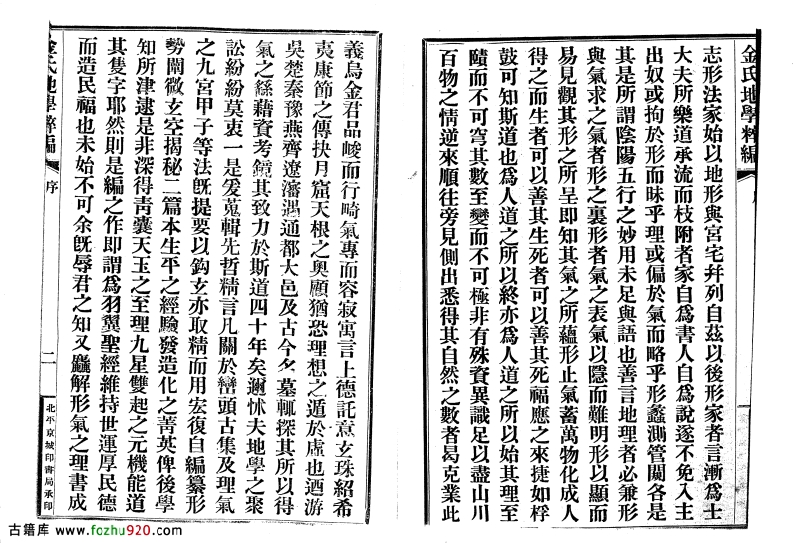 金氏地學粹編
志形法家始以地形與宮宅幷列自茲以後形家者言漸爲士
大夫所樂道承流而枝附者家自爲書人自爲說遂不免入主
出奴或拘於形而昧乎理或偏於氣而略乎形蠡測管闚各是
其是所謂陰陽五行之妙用未足與語也善言地理者必兼形
與氣求之氣者形之裏形者氣之表氣以隱而難明形以顯而
易見觀其形之所呈即知其氣之所蘊形止氣蓄萬物化成人
得之而生者可以善其生死者可以善其死福應之來捷如桴
鼓可知斯道也爲人道之所以終亦爲人道之所以始其理至
賾而不可穹其數至變而不可極非有殊資異識足以盡山川
百物之情逆來順往旁見側出悉得其自然之數者曷克業此
義烏金君品峻而行畸氣專而容寂寓言上德託意玄珠紹希
夷康節之傳抉月窟天根之奧顧猶恐理想之遁於虛也迺游
吳楚秦豫燕齊遼瀋遇通都大邑及古今名墓輒探其所以得
氣之繇藉資考鏡其致力於斯道四十年矣邇怵夫地學之衆
訟紛紛莫衷一是爰蒐輯先哲精言凡關於巒頭古集及理氣
之九宮甲子等法旣提要以鈎玄亦取精而用宏復自編纂形
勢闡微玄空揭秘二篇本生平之經驗發造化之菁英俾後學
知所津逮是非深得靑囊天玉之至理九星雙起之元機能道
其隻字耶然則是編之作即謂爲羽翼聖經維持世運厚民德
而造民福也未始不可余旣辱君之知又龥解形氣之理書成
金氏地學粹編
序
二
北平京城印書局承印
古籍库 www.fozhu920.com